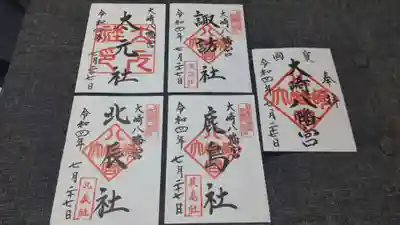 大崎八幡宮
太元社
令和四年七月二十七日
大崎八幡宮
諏訪社
令和四年七月二十七日
奉拝
國寳
大崎八幡宮
令和四年七月二十七日
大崎八幡宮
北辰社
令和四年七月二十七日
北辰社
大崎八幡宮
鹿島社
令和四年七月二十七日
鹿島社